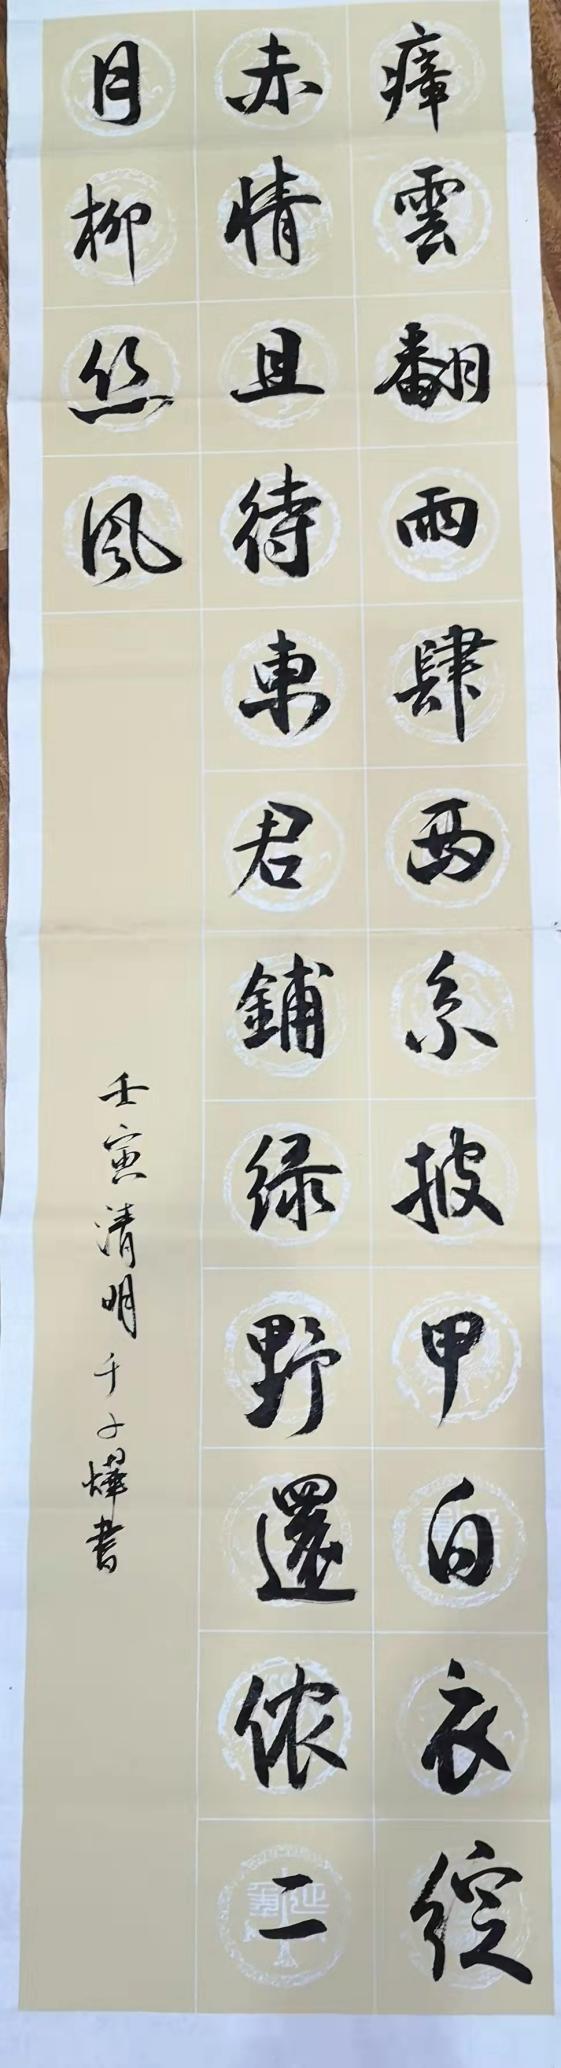 瘴雲翻雨肆西系披甲白衣綻
赤情且待東君鋪绿野還侬二
月柳丝风
壬寅清明千子燁書